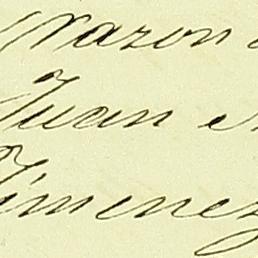 razon
Juan
Jimenez